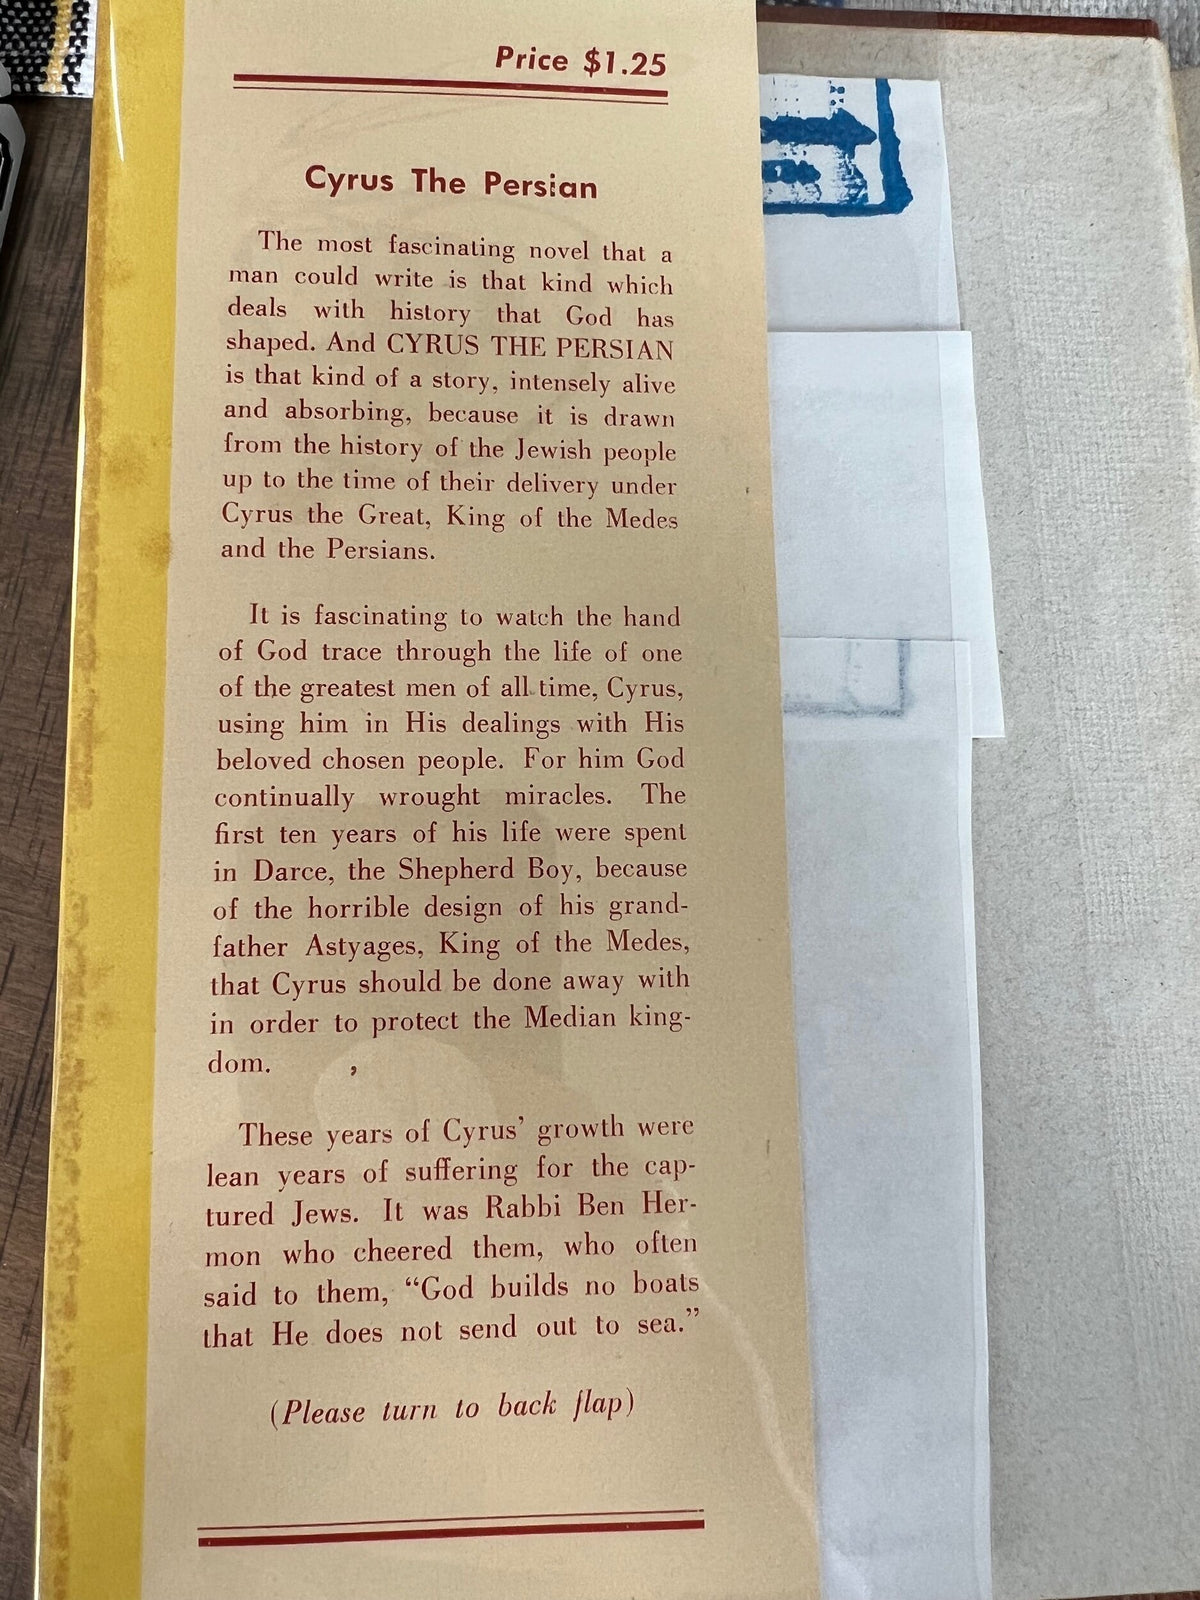 Price $1.25
Cyrus The Persian
The most fascinating novel that a
man could write is that kind which
deals with history that God has
shaped. And CYRUS THE PERSIAN
is that kind of a story, intensely alive
and absorbing, because it is drawn
from the history of the Jewish people
up to the time of their delivery under
Cyrus the Great, King of the Medes
and the Persians.
It is fascinating to watch the hand
of God trace through the life of one
of the greatest men of all time, Cyrus,
using him in His dealings with His
beloved chosen people. For him God
continually wrought miracles. The
first ten years of his life were spent
in Darce, the Shepherd Boy, because
of the horrible design of his grand-
father Astyages, King of the Medes,
that Cyrus should be done away with
in order to protect the Median king-
dom.
These years of Cyrus' growth were
lean years of suffering for the cap-
tured Jews. It was Rabbi Ben Her-
mon who cheered them, who often
said to them, “God builds no boats
that He does not send out to sea.”
(Please turn to back flap)